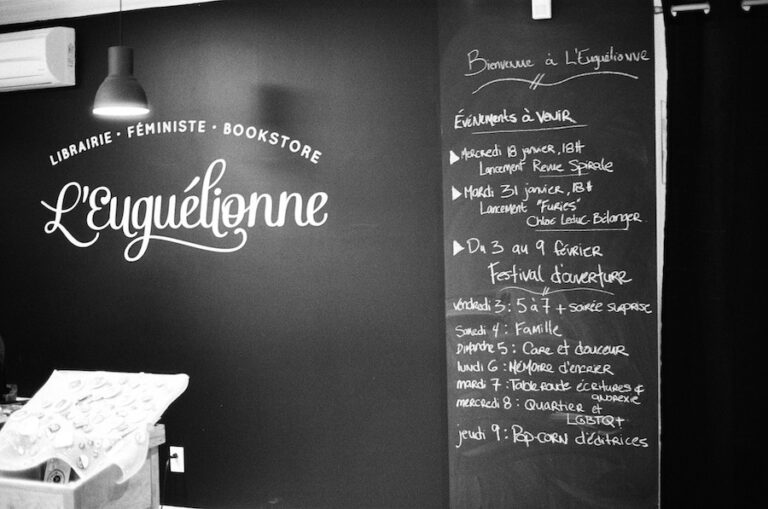 LIBRAIRIE · FÉMINISTE · BOOKSTORE
L'Euguélionne
Bienvenue à L'Euguélionne
Événements à venir
Mercredi 18 janvier, 18H
Lancement Revue Spirale
Mardi 31 janvier, 18H
Lancement "Furies"
Chloé Leduc Bélanger
Du 3 au 9 février
Festival d'ouverture
vendredi 3 : 5 à 7 + soirée surprise
Samedi 4 : Famille
Dimanche 5 : Care et douceur
lundi 6 : Mémoire d'encrier
mardi 7 : Table ronde écritures &
anorexie
mercredi 8 : Quartier et
LGBTQ+
jeudi 9 : Pop-corn d'éditrices